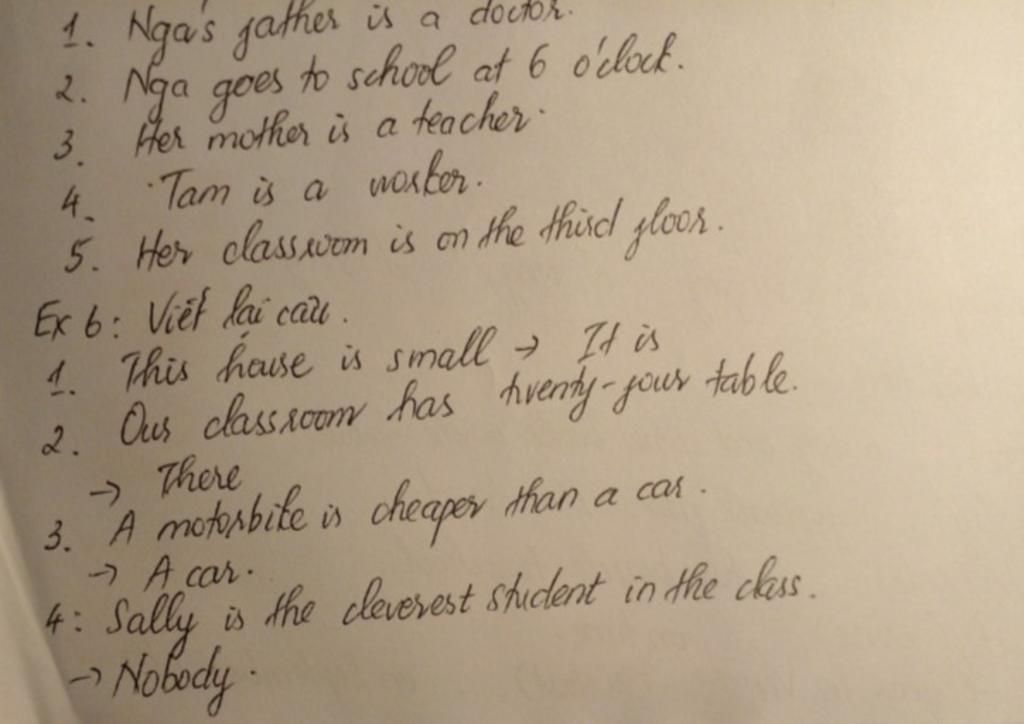 1. Nga's father is a doctor.
2. Nga goes to school at 6 o'clock.
3. Her mother is a teacher.
4. Tam is a worker.
5. Her classroom is on the third floor.
Ex 6: Viết lại câu.
1. This house is small → It is
2. Our classroom has twenty-four table.
→ There
3. A motorbike is cheaper than a car.
→ A car.
4: Sally is the cleverest student in the class.
→ Nobody.